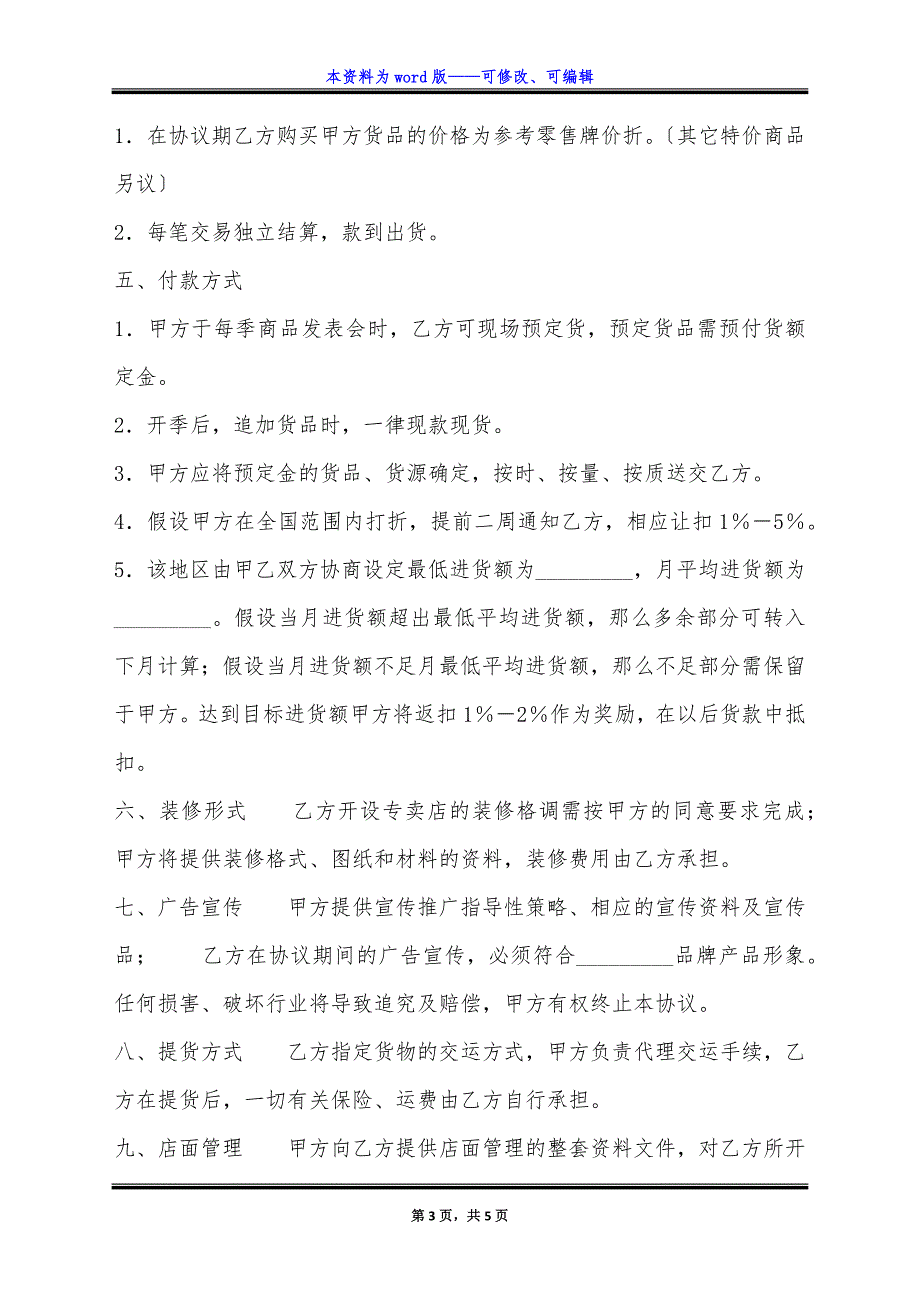 本资料为 word 版——可修改、可编辑
1．在协议期乙方购买甲方货品的价格为参考零售牌价折。〔其它特价商品
另议〕
2．每笔交易独立结算，款到出货。
五、付款方式
1．甲方于每季商品发表会时，乙方可现场预定货，预定货品需预付货额
定金。
2．开季后，追加货品时，一律现款现货。
3．甲方应将预定金的货品、货源确定，按时、按量、按质送交乙方。
4．假设甲方在全国范围内打折，提前二周通知乙方，相应让扣 1％－5％。
5．该地区由甲乙双方协商设定最低进货额为_________，月平均进货额为
_________。假设当月进货额超出最低平均进货额，那么多余部分可转入
下月计算；假设当月进货额不足月最低平均进货额，那么不足部分需保留
于甲方。达到目标进货额甲方将返扣 1％－2％作为奖励，在以后货款中抵
扣。
六、装修形式　　乙方开设专卖店的装修格调需按甲方的同意要求完成；
甲方将提供装修格式、图纸和材料的资料，装修费用由乙方承担。
七、广告宣传　　甲方提供宣传推广指导性策略、相应的宣传资料及宣传
品；　　乙方在协议期间的广告宣传，必须符合_________品牌产品形象。
任何损害、破坏行业将导致追究及赔偿，甲方有权终止本协议。
八、提货方式　　乙方指定货物的交运方式，甲方负责代理交运手续，乙
方在提货后，一切有关保险、运费由乙方自行承担。
九、店面管理　　甲方向乙方提供店面管理的整套资料文件，对乙方所开
第 3 页，共 5 页